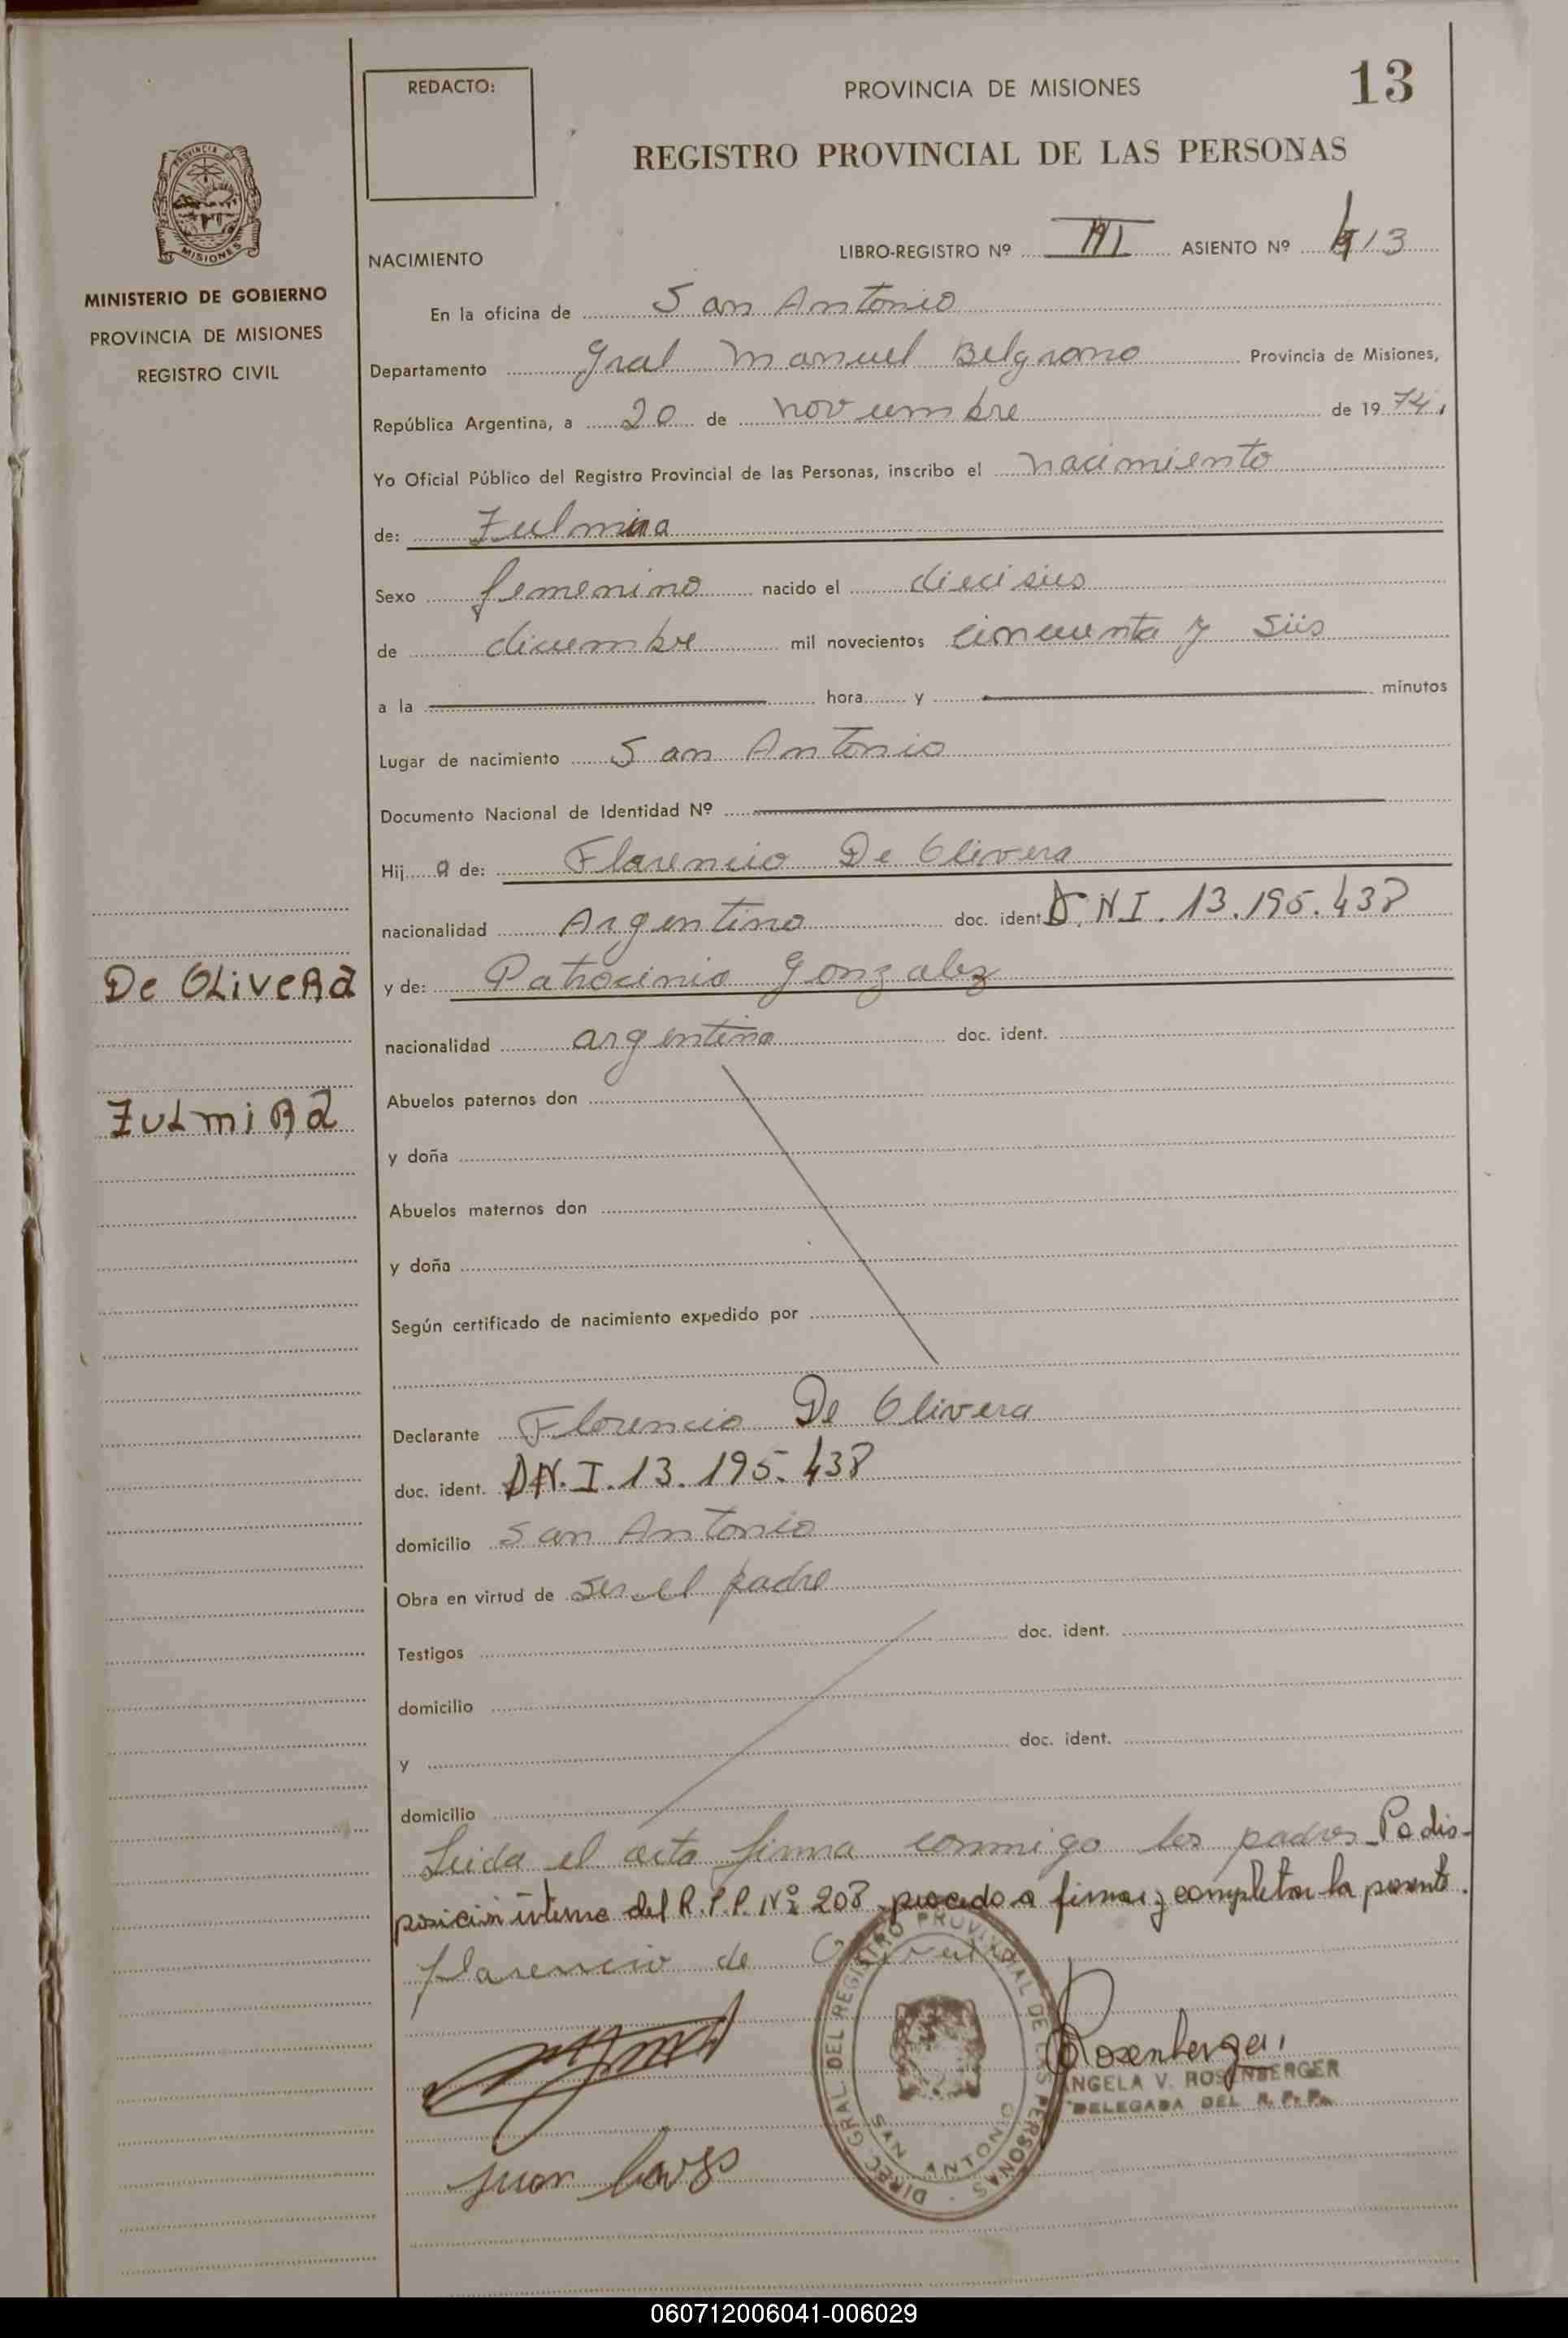 REDACTO:
PROVINCIA DE MISIONES
13
REGISTRO PROVINCIAL DE LAS PERSONAS
PROVINCIA D
MISIONES
MINISTERIO DE GOBIERNO
PROVINCIA DE MISIONES
REGISTRO CIVIL
NACIMIENTO LIBRO-REGISTRO Nº III ASIENTO Nº 413
En la oficina de San Antonio
Departamento Gral Manuel Belgrano Provincia de Misiones,
República Argentina, a 20 de noviembre de 1974,
Yo Oficial Público del Registro Provincial de las Personas, inscribo el nacimiento
de: Zulmira
Sexo femenino nacido el dieciseis
de diciembre mil novecientos cincuenta y seis
a la hora y minutos
Lugar de nacimiento San Antonio
Documento Nacional de Identidad Nº
Hij a de: Florencio De Olivera
nacionalidad Argentino doc. ident D.N.I. 13.195.438
De OLiveRa
y de: Patrocinio Gonzalez
nacionalidad argentina doc. ident.
Abuelos paternos don
ZuLmiRa
y doña
Abuelos maternos don
y doña
Según certificado de nacimiento expedido por
Declarante Florencio De Olivera
doc. ident. D.N.I. 13.195.438
domicilio San Antonio
Obra en virtud de ser el padre
Testigos doc. ident.
domicilio
y doc. ident.
domicilio
Leida el acta firma conmigo los padres Po dis-
posición interna del R.P.P. Nº 208 procedo a firmar y completar la presente.
florencio de
DIREC. GRAL. DEL REGISTRO PROVINCIAL DE LAS PERSONAS
SAN ANTONIO
Rosenberger
ANGELA V. ROSENBERGER
DELEGADA DEL R. P. P.
juan
060712006041-006029